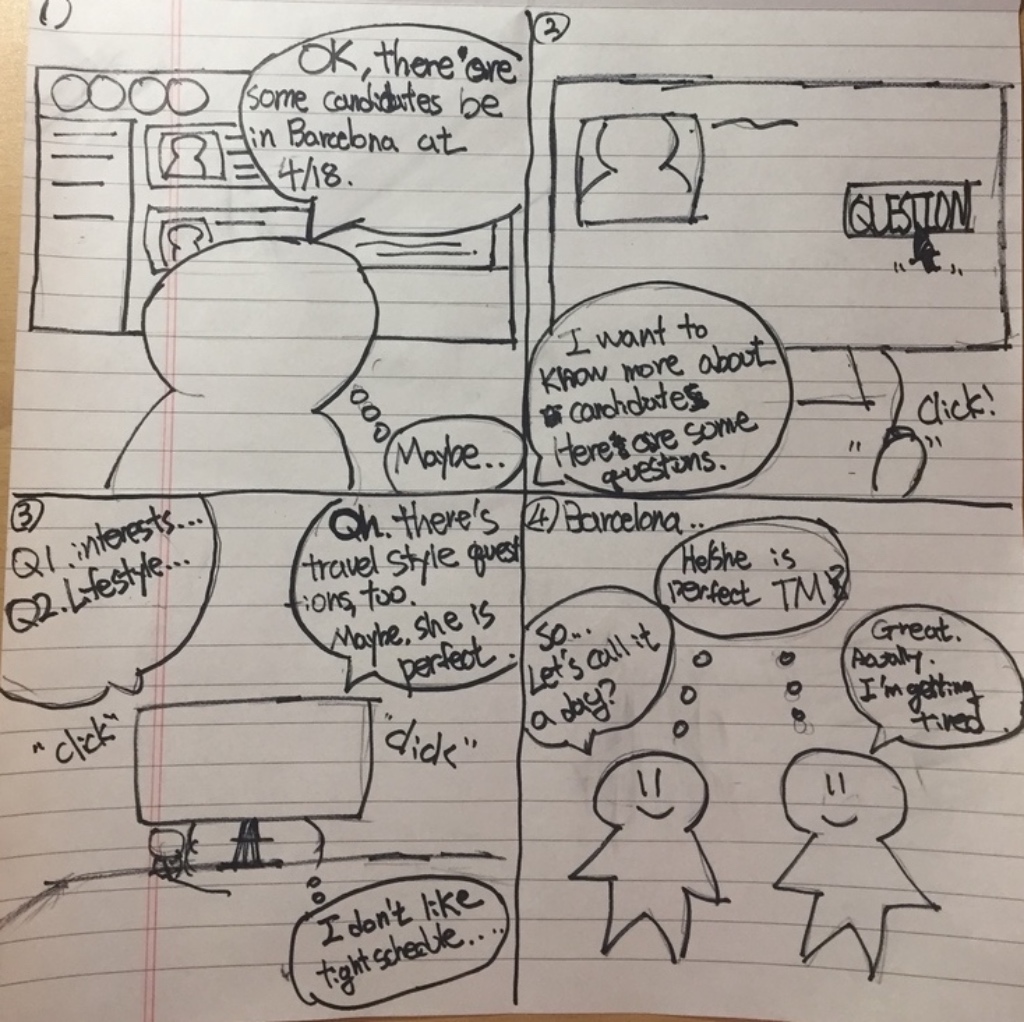 1)
OK, there are
some candidates be
in Barcelona at
4/18.
Maybe..
②
QUESTION
I want to
know more about
candidates
Here are some
questions.
Click!
③
Q1. interests...
Q2. Lifestyle...
Oh. there's
travel style quest
ions, too.
Maybe, she is
perfect.
"click"
"click"
I don't like
tight schedule....
④ Barcelona..
He/she is
perfect TM?
So...
Let's call it
a day?
Great.
Acually.
I'm getting
tired.